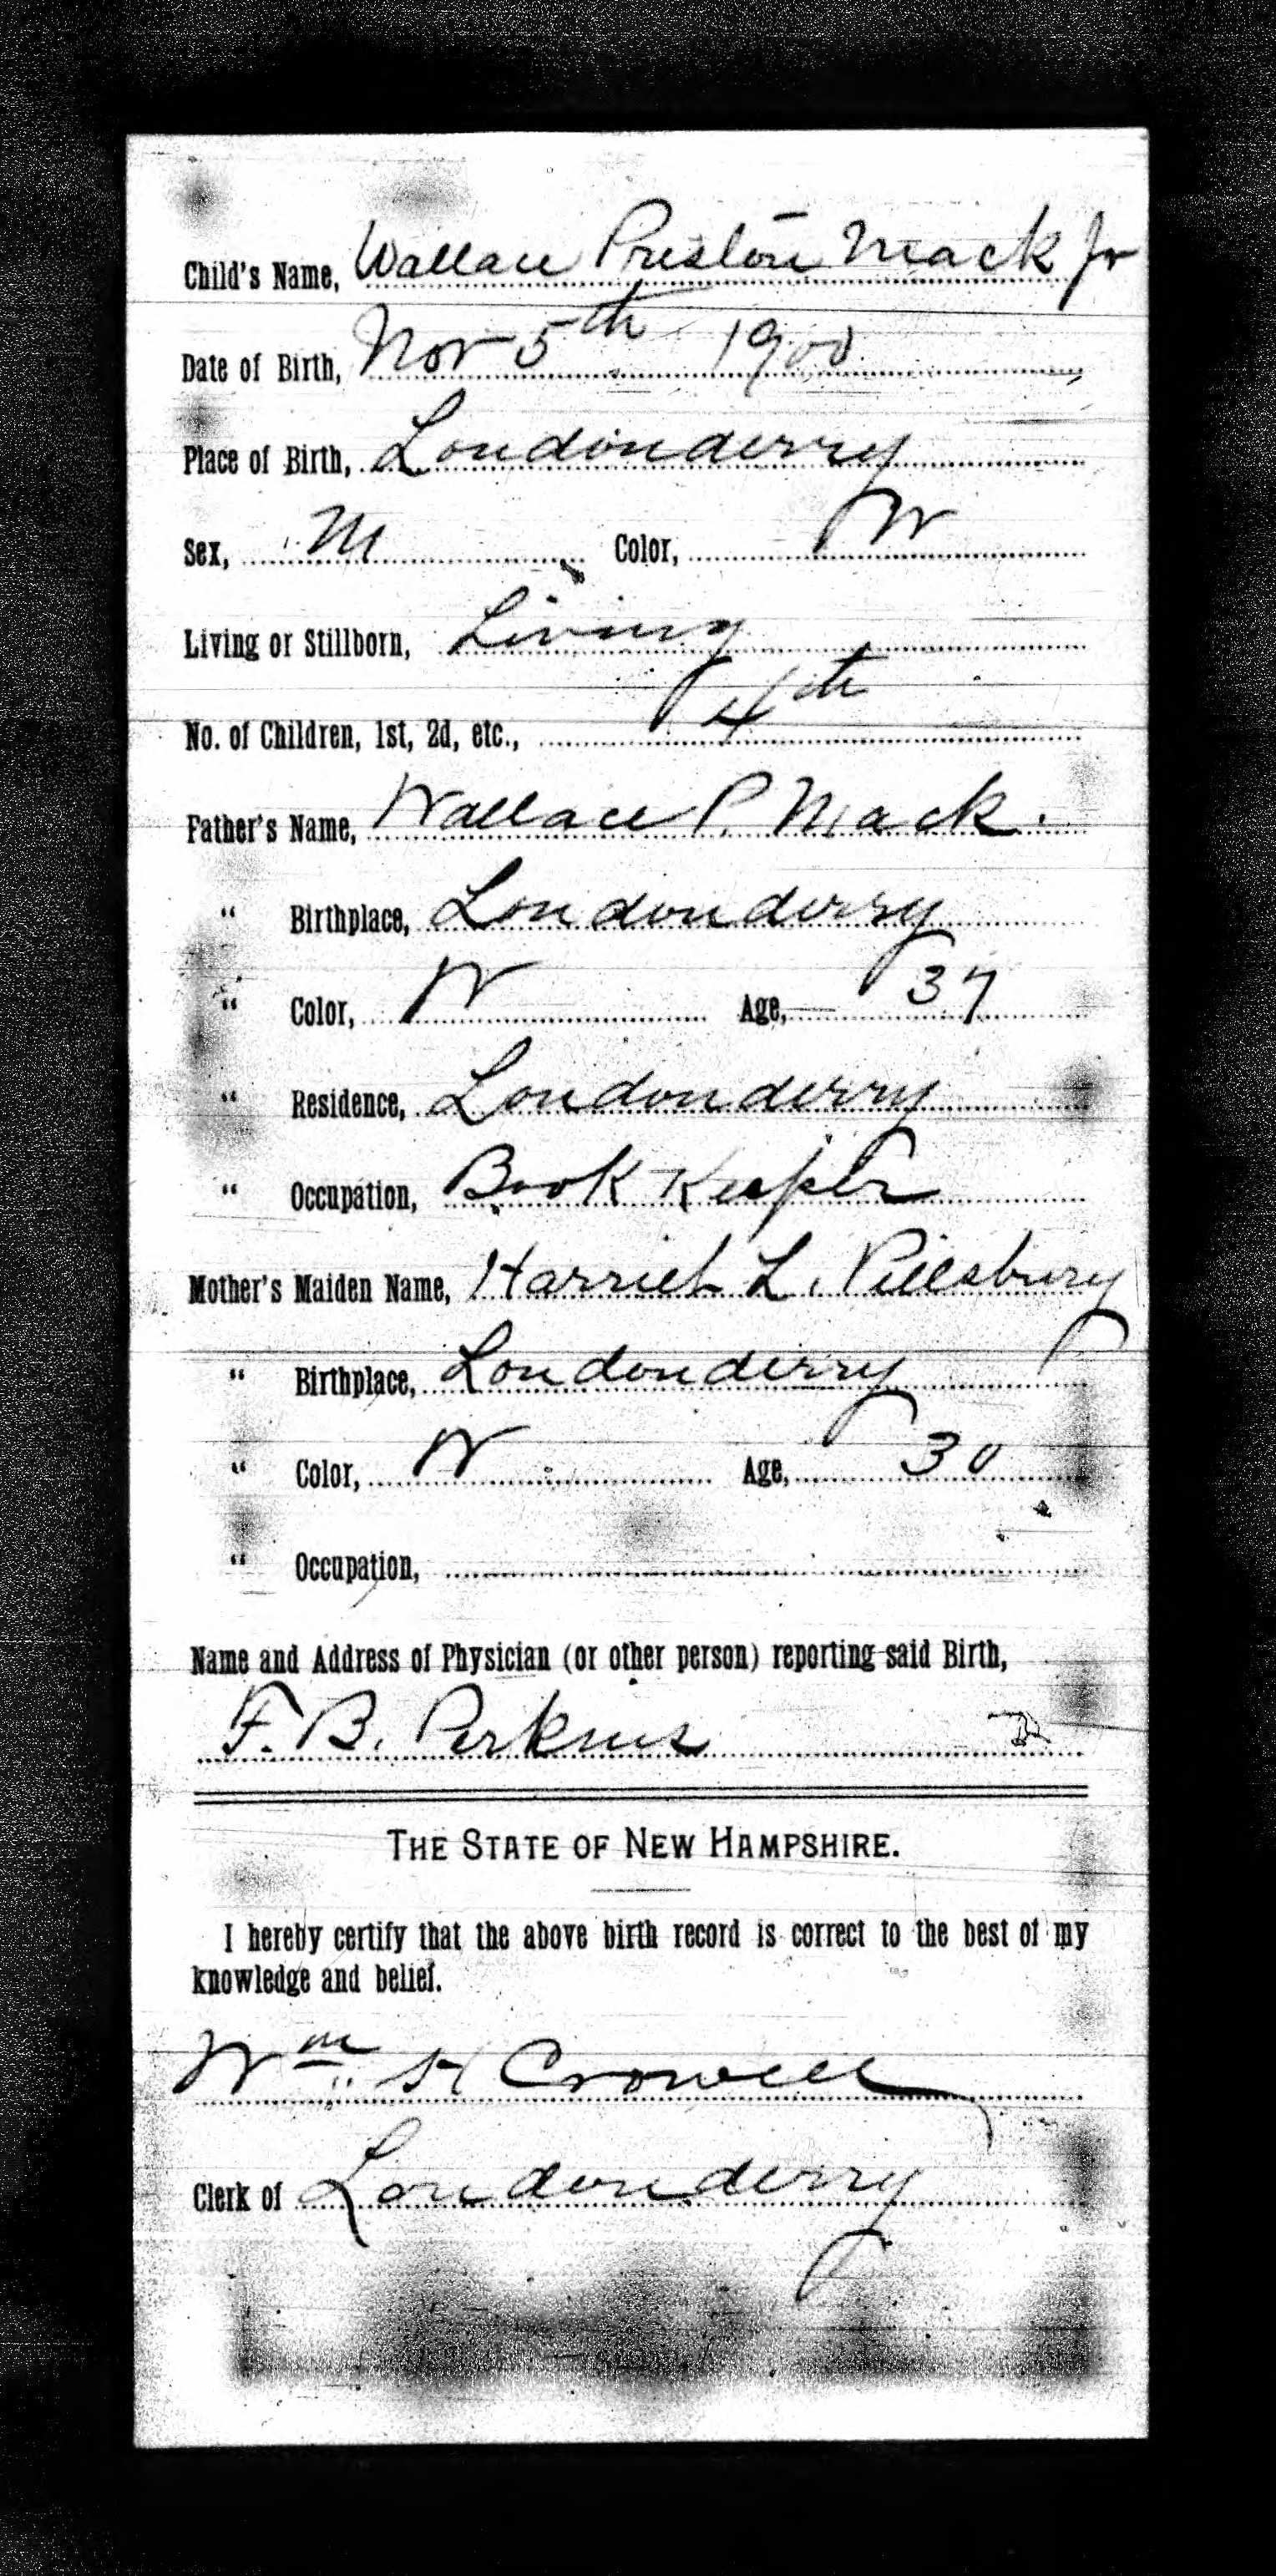 Child's Name, Wallace Preston Mack Jr
Date of Birth, Nov 5th 1900
Place of Birth, Londonderry
Sex, M Color, W
Living or Stillborn, Living
No. of Children, 1st, 2d, etc., 4th
Father's Name, Wallace P. Mack.
" Birthplace, Londonderry
" Color, W Age, 37
" Residence, Londonderry
" Occupation, Book Keeper
Mother's Maiden Name, Harriet L. Pillsbury
" Birthplace, Londonderry
" Color, W Age, 30
" Occupation,
Name and Address of Physician (or other person) reporting said Birth,
F. B. Perkins
THE STATE OF NEW HAMPSHIRE.
I hereby certify that the above birth record is correct to the best of my
knowledge and belief.
Wm H Crowell
Clerk of Londonderry